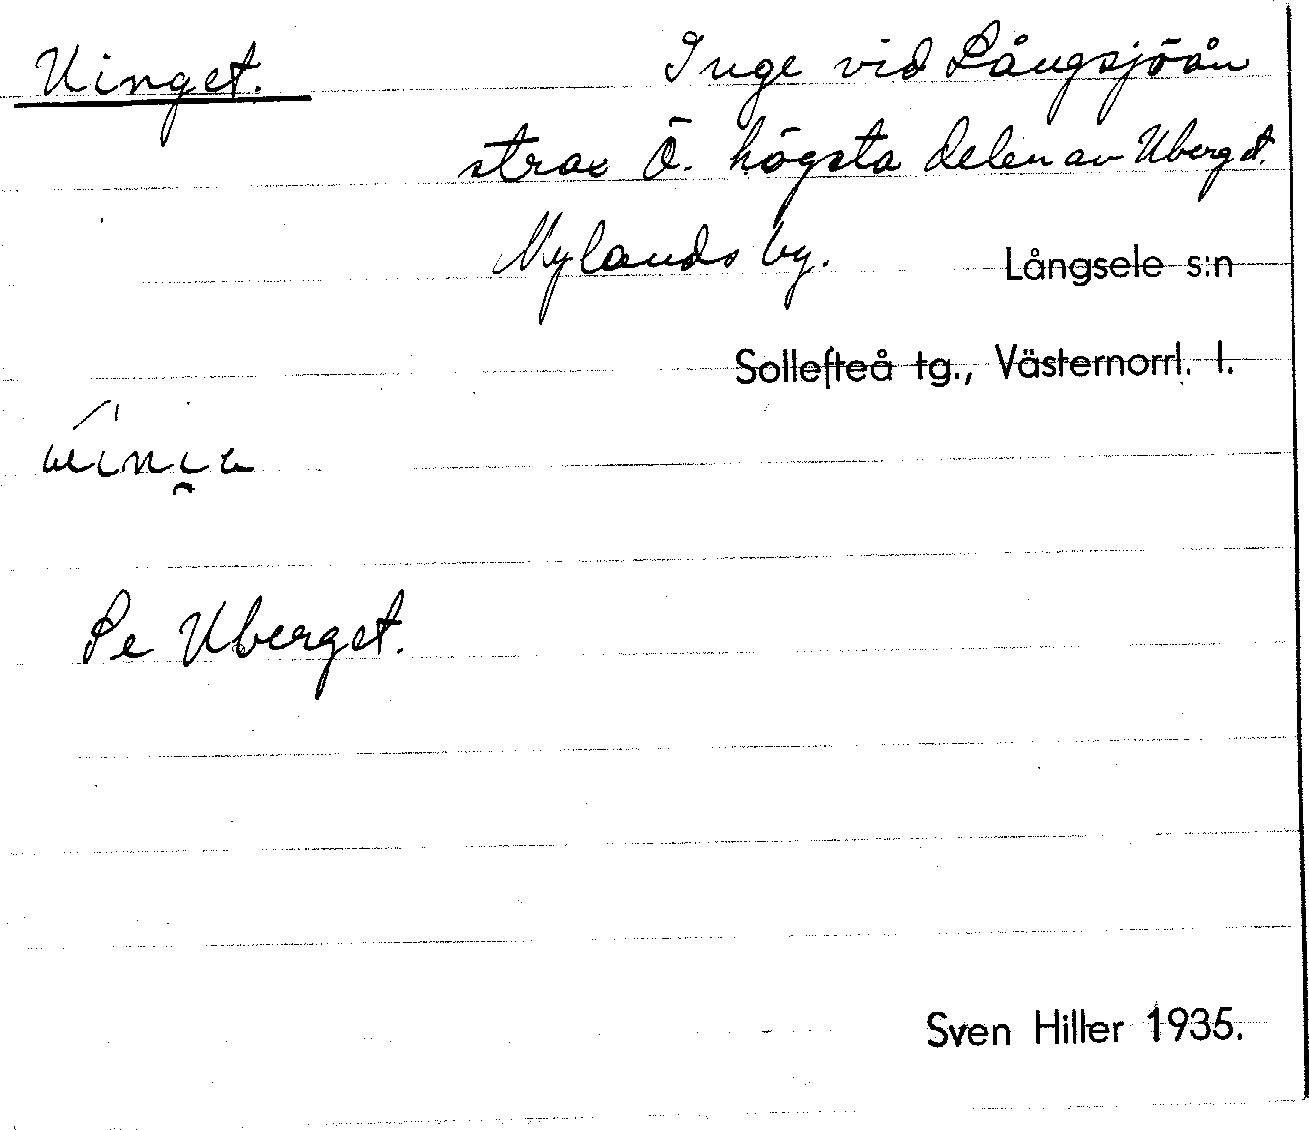 Uinget.
Inge vid Långsjöån
strax Ö. högsta delen av Uberget.
Nylands by. Långsele s:n
Sollefteå tg., Västernorrl. l.
Se Uberget.
Sven Hiller 1935.